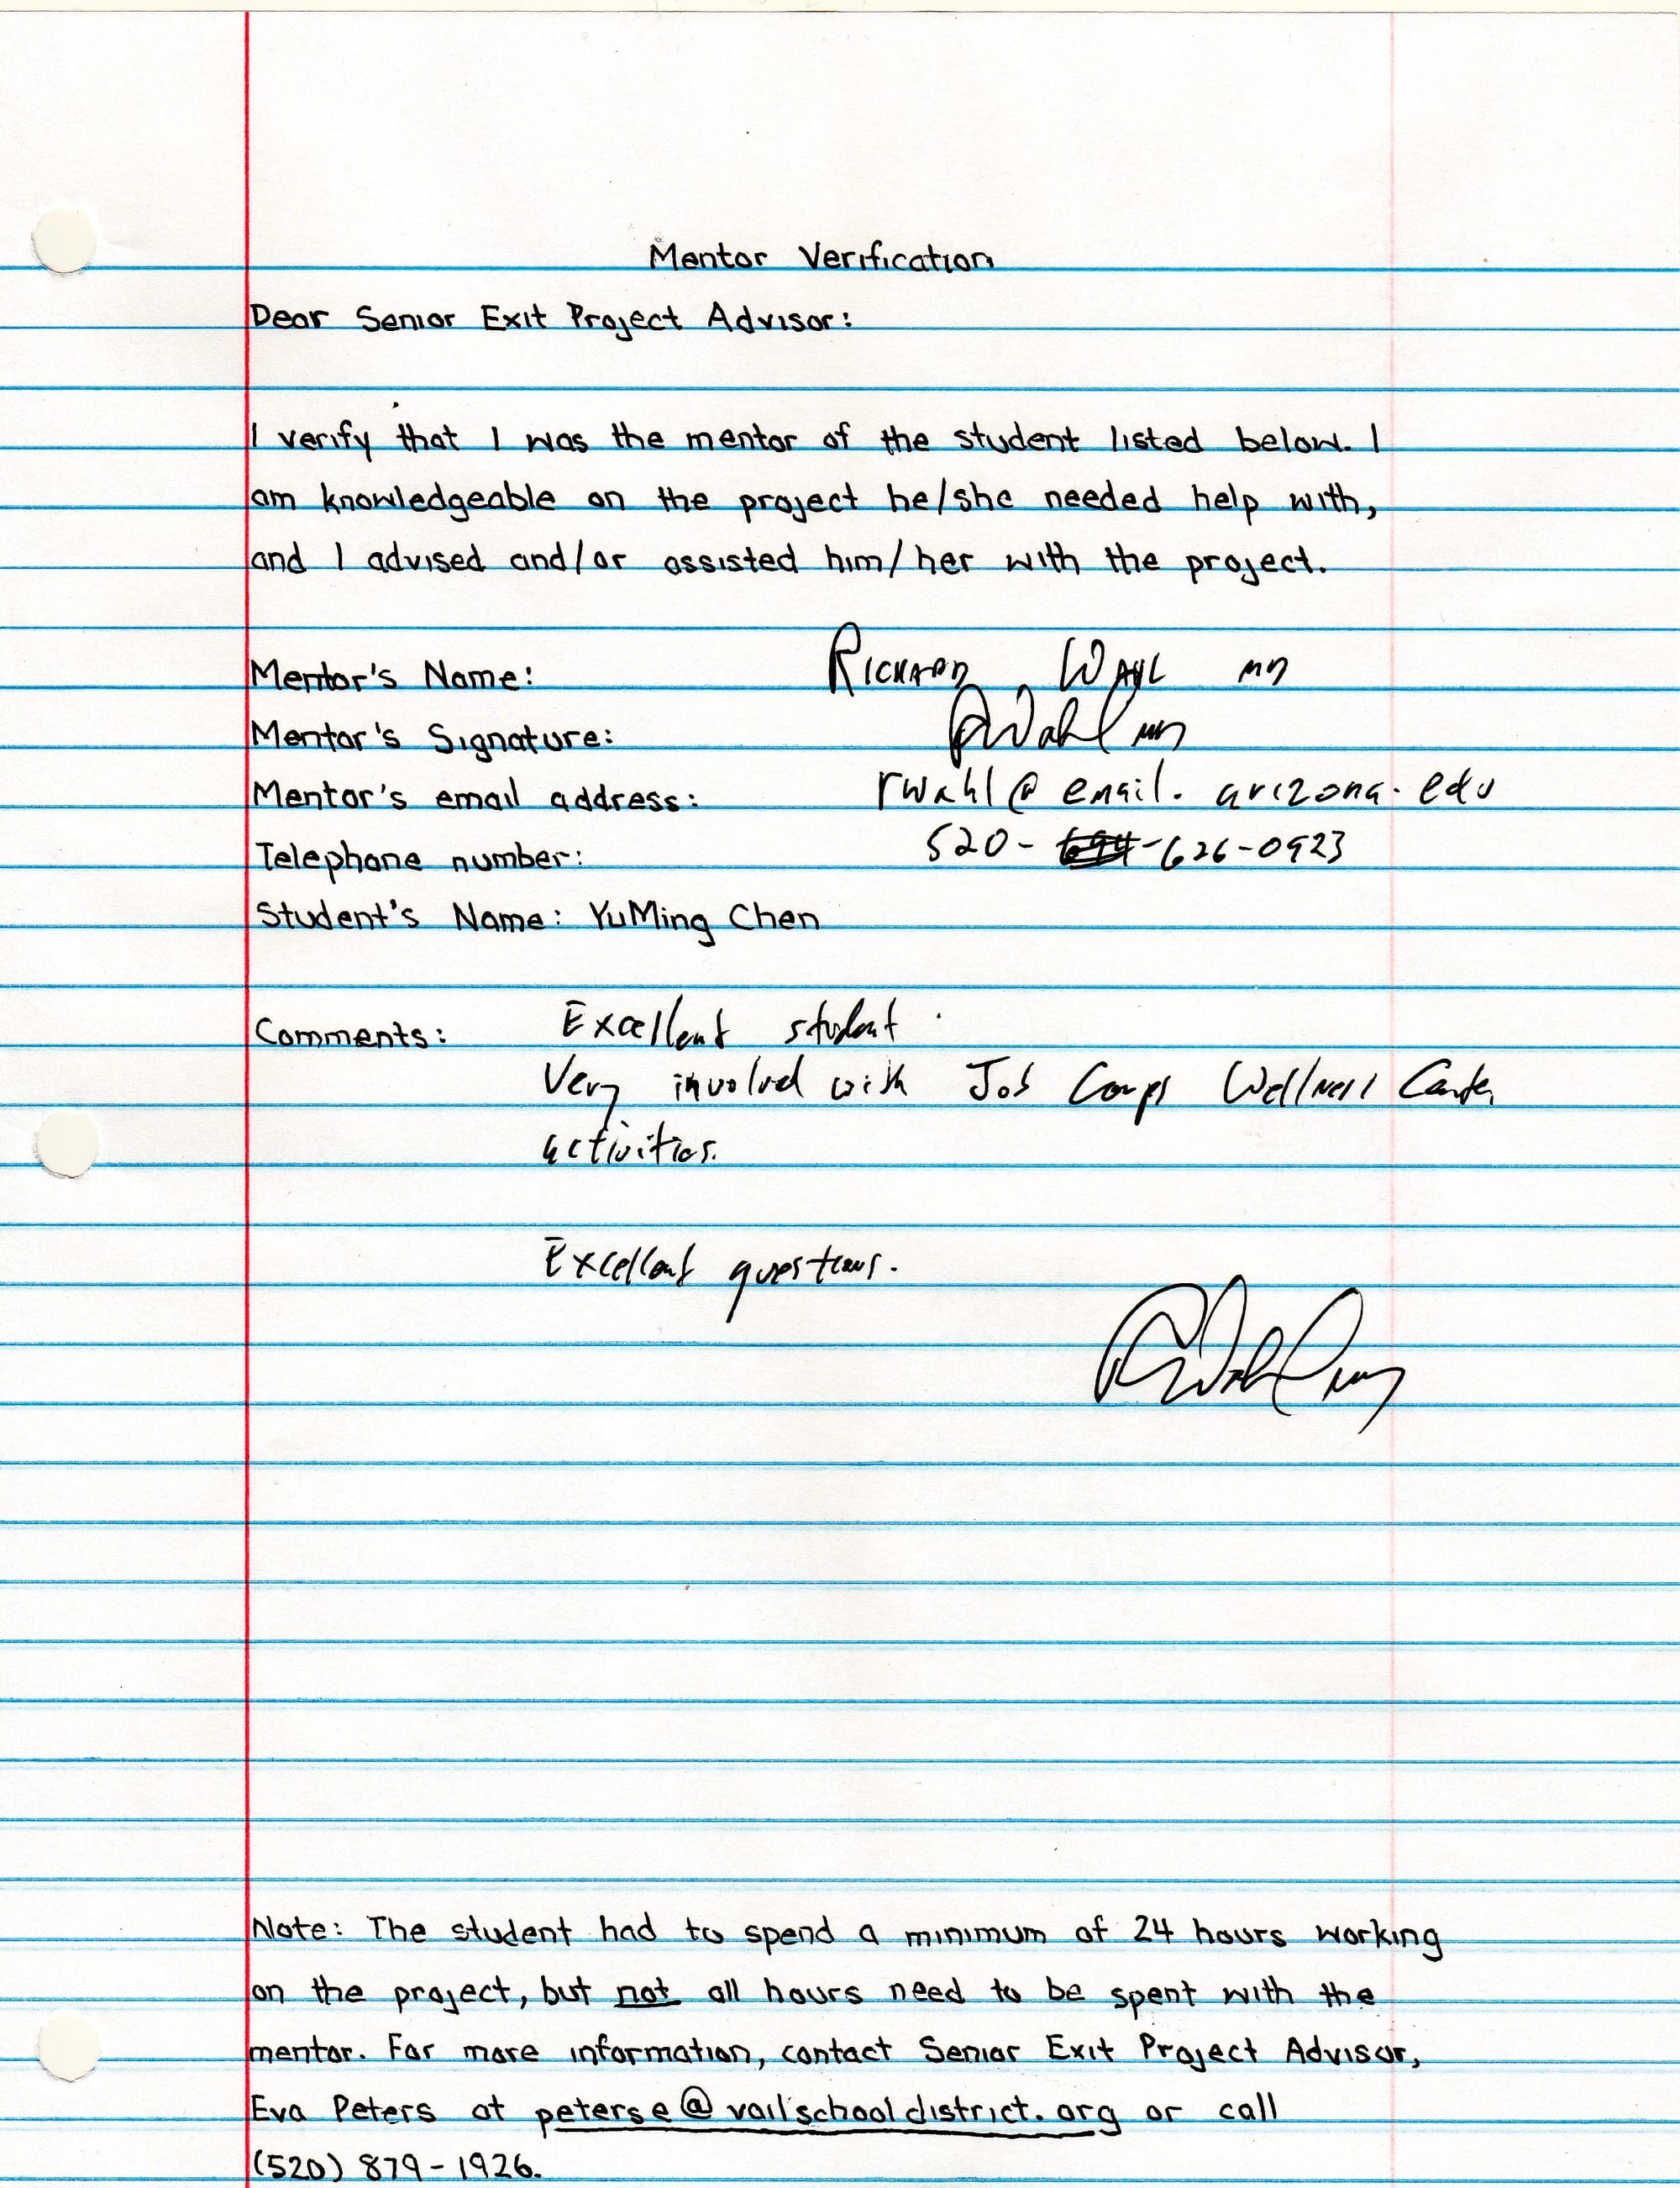 Mentor Verification
Dear Senior Exit Project Advisor:
I verify that I was the mentor of the student listed below. I
am knowledgeable on the project he/she needed help with,
and I advised and/or assisted him/her with the project.
Mentor's Name: RICHARD WAHL MD
Mentor's Signature: RWahl MD
Mentor's email address: rwahl@email.arizona.edu
Telephone number: 520-626-0923
Student's Name: YuMing Chen
Comments: Excellent student.
Very involved with Job Corps Wellness Center
activities.
Excellent questions.
RWahl MD
Note: The student had to spend a minimum of 24 hours working
on the project, but not all hours need to be spent with the
mentor. For more information, contact Senior Exit Project Advisor,
Eva Peters at peterse@vailschooldistrict.org or call
(520) 879-1926.